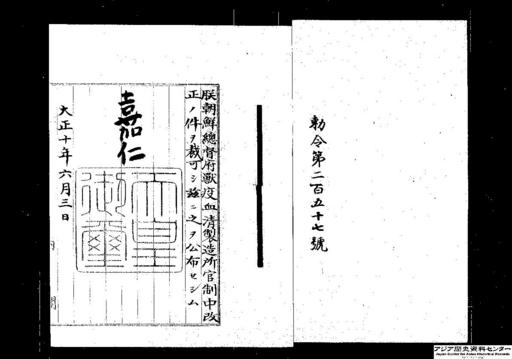 朕朝鮮總督府獸疫血清製造所官制中改
正ノ件ヲ裁可シ茲ニ之ヲ公布セシム
嘉仁
天皇
御璽
大正十年六月三日
勅令第二百五十七號
アジア歴史資料センター
Japan Center for Asian Historical Records